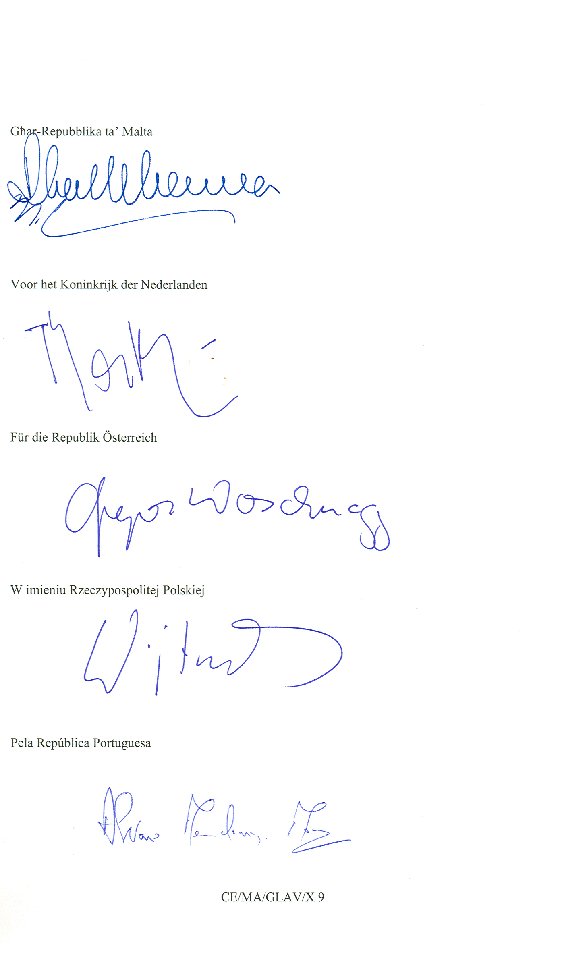 Għar-Repubblika ta' Malta
Voor het Koninkrijk der Nederlanden
Für die Republik Österreich
Gregor Woschnagg
W imieniu Rzeczypospolitej Polskiej
Pela República Portuguesa
CE/MA/GLAV/X 9